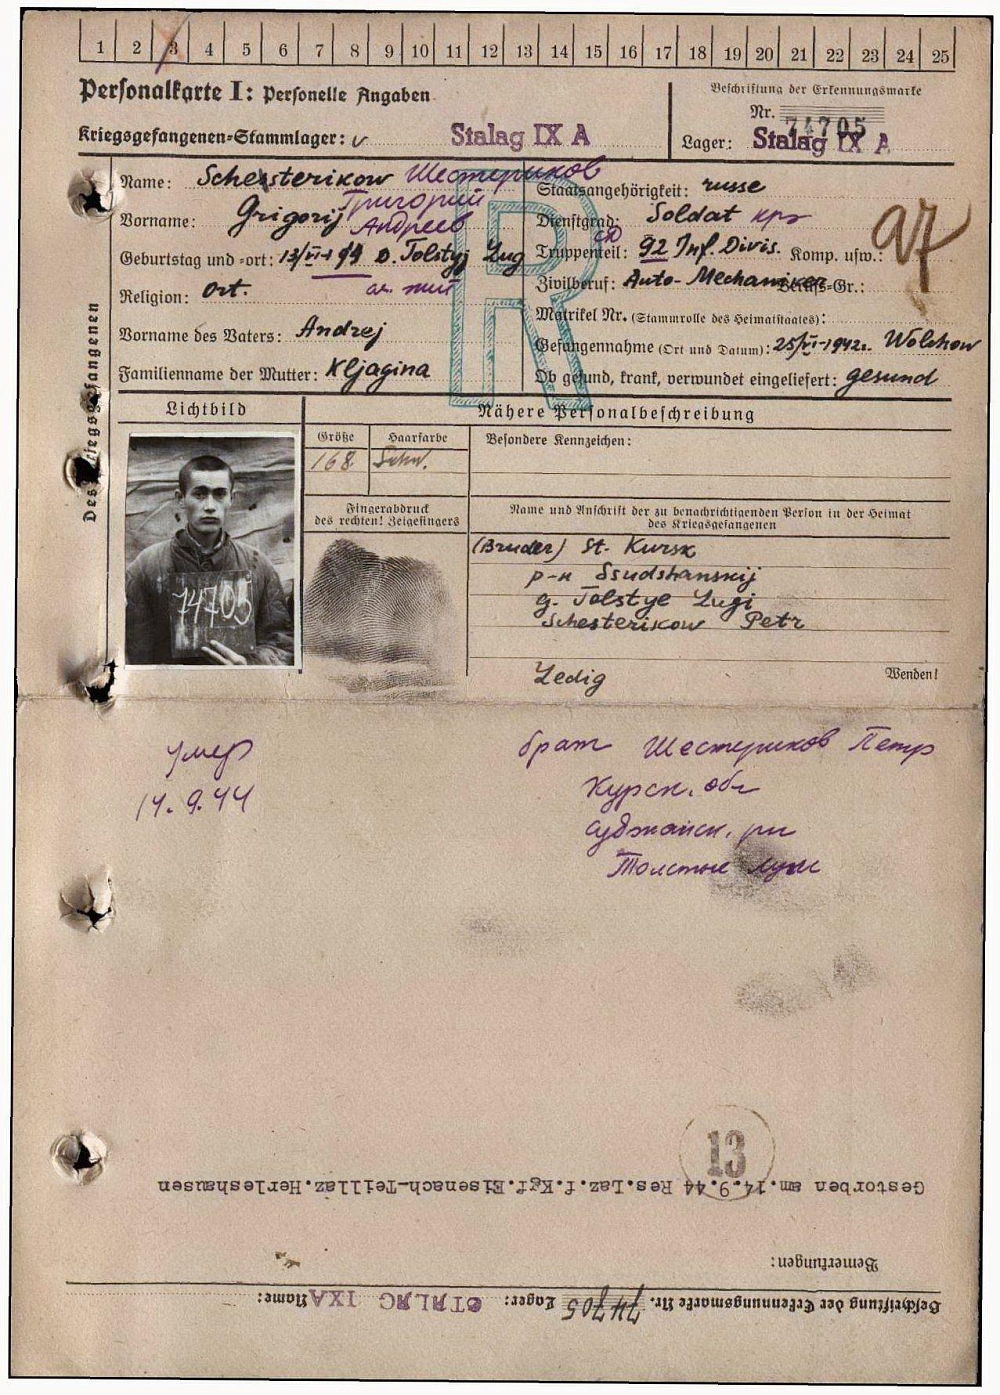 1 2 3 4 5 6 7 8 9 10 11 12 13 14 15 16 17 18 19 20 21 22 23 24 25
Personalkarte I: Personelle Angaben
Kriegsgefangenen-Stammlager: Stalag IX A
Beschriftung der Erkennungsmarke
Nr. 74705
Lager: Stalag IX A
Des Kriegsgefangenen
Name: Schesterikow Шестериков
Vorname: Grigorij Григорий
Андреев
Geburtstag und -ort: D. Tolstyj Lug
Religion: Ort.
Vorname des Vaters: Andrej
Familienname der Mutter: Kljagina
R
Staatsangehörigkeit: russe
Dienstgrad: Soldat кр
Truppenteil: 92 Inf. Divis. Komp. usw.:
сд
Zivilberuf: Auto-Mechaniker Berufs-Gr.:
Matrikel Nr. (Stammrolle des Heimatstaates):
Gefangennahme (Ort und Datum): 25/VI-1942. Wolchow
Ob gesund, krank, verwundet eingeliefert: gesund
97
Lichtbild
Nähere Personalbeschreibung
Größe Haarfarbe
168. Schw.
Besondere Kennzeichen:
Fingerabdruck
des rechten! Zeigefingers
74705
Name und Anschrift der zu benachrichtigenden Person in der Heimat
des Kriegsgefangenen
(Bruder) St. Kursk
р-н Ssudshanskij
g. Tolstye Lugi
Schesterikow Petr
Ledig
Wenden!
умер
14.9.44
брат Шестериков Петр
Курск. обл
Суджанск. рн
Толстые Луги
13
Gestorben am.14.9.44 Res.Laz.f.Kgf.Eisenach-Teillaz.Herleshausen
Bemerkungen:
Beschriftung der Erkennungsmarke Nr. 74705 Lager: STALAG IXA Name: